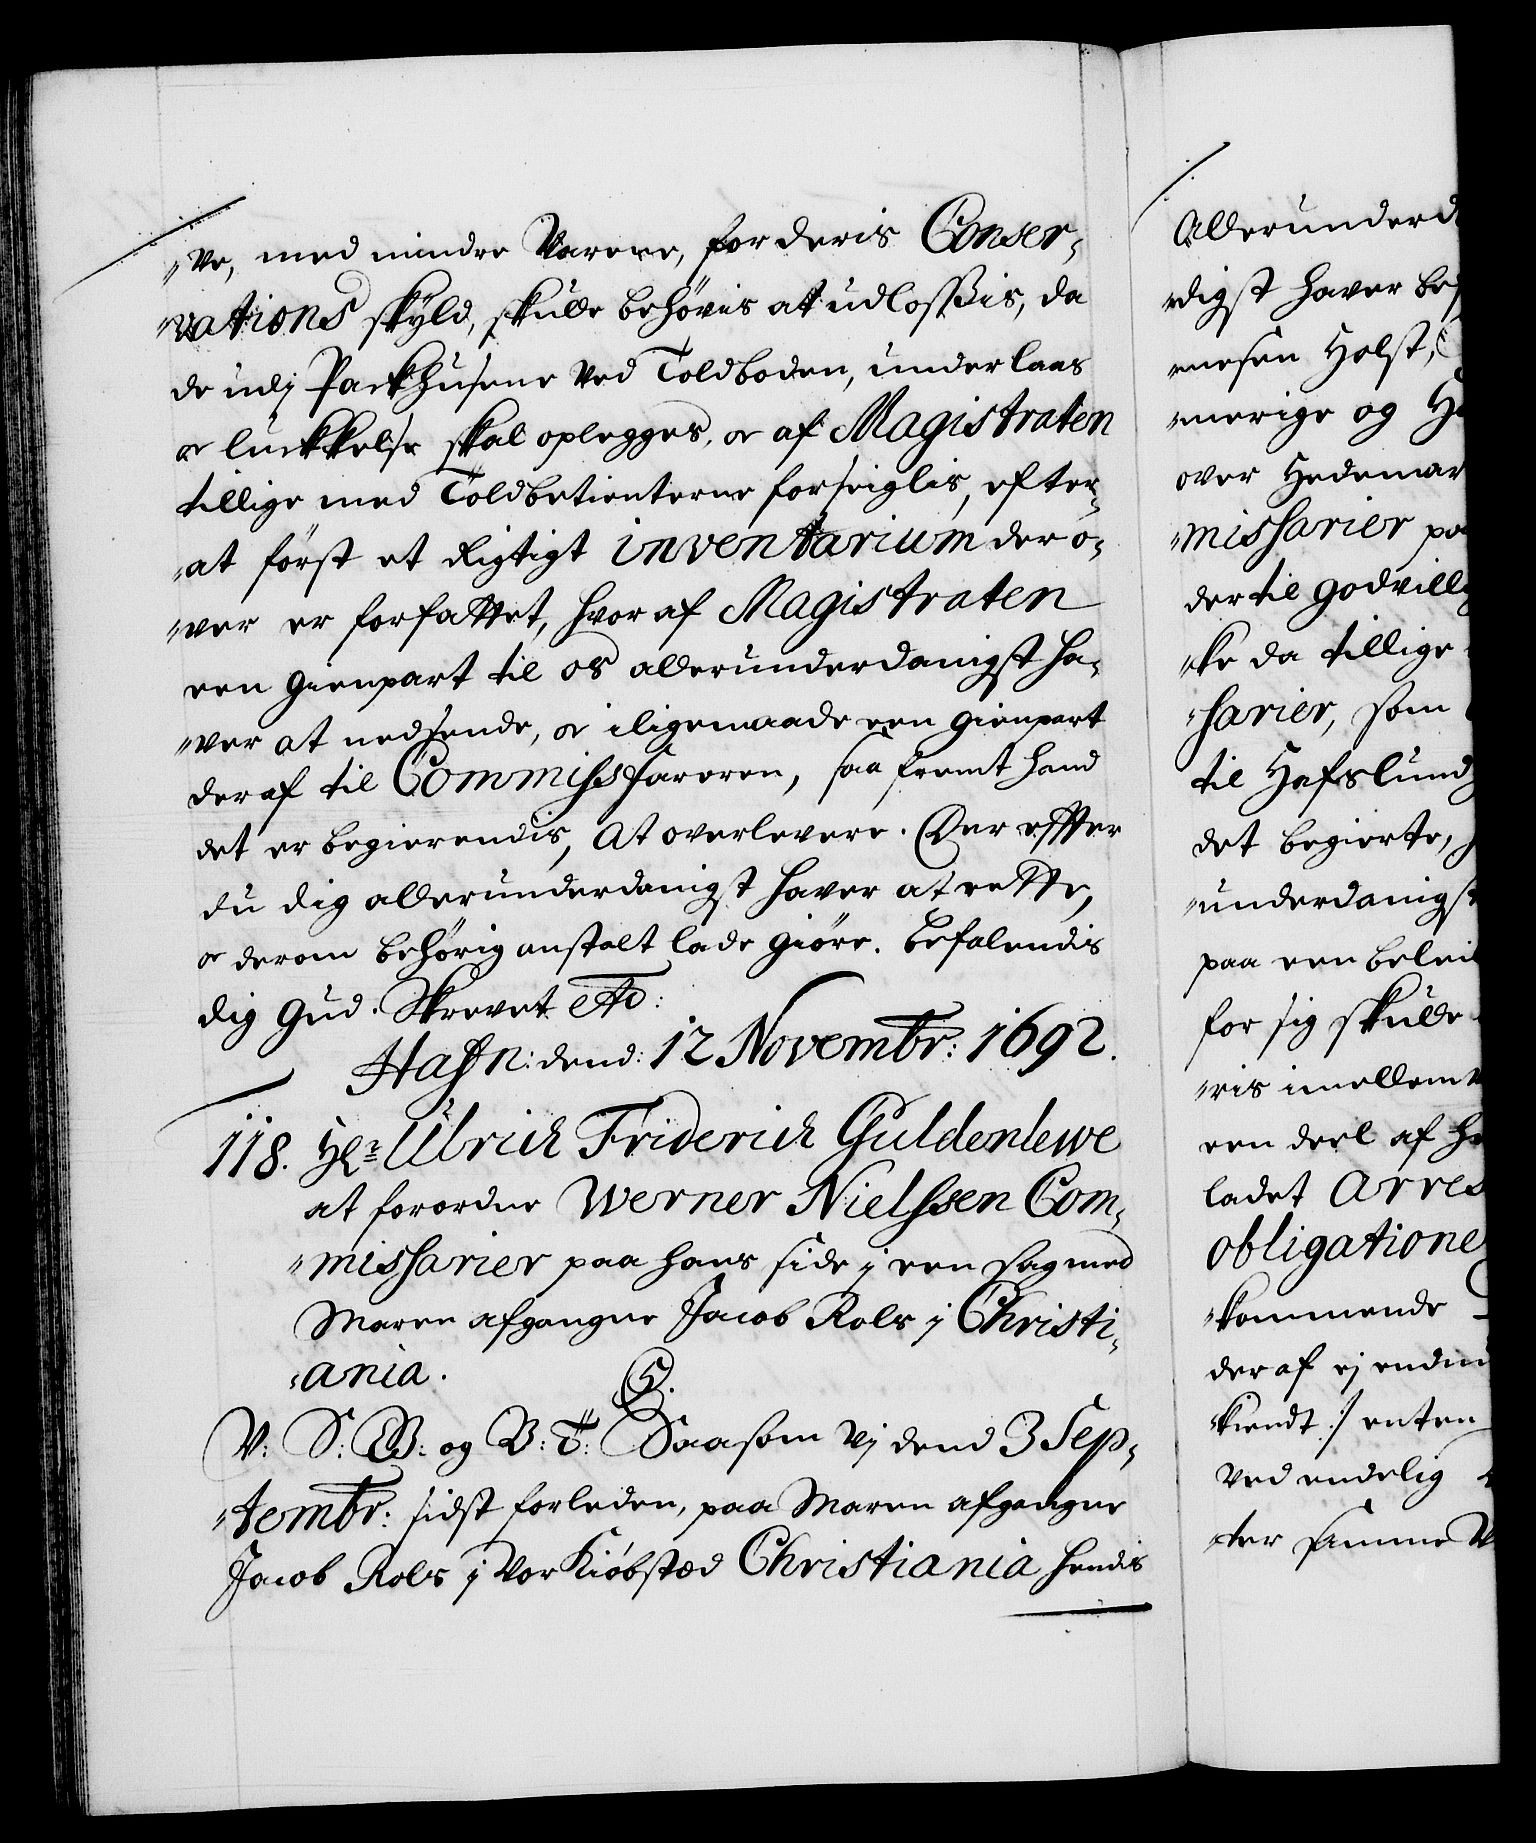 "ve, med mindre Varerne, for deris Conser,
"vations skyld, skulle behøvis at udlosssis, da
de udj Packhusene ved Toldboden, under laas
oc luckkelse skal oplegges, oc af Magistraten
tillige med Toldbetienterne forseiglis, efter,
"at først et Rigtigt inventarium der o,
"ver er forfattet, hvoraf Magistraten
een gienpart til os allerunderdanigst ha,
"ver at nedsende, oc iligemaade een gienpart
deraf til Commissareren, saa fremt hand
det er begierendis, at overlevere. Der effter
du dig allerunderdanigst haver at rette,
oc derom behørig anstalt lade giøre. Befalendis
dig Gud. Skrevet etc:
Hafn: dend: 12 Novembr: 1692.
118. Hr: Ulrich Friderich Guldenlewe
at forordne Werner Nielssen Com,
"missarier paa hans side j een sag med
Maren afgangne Jacob Rols j Christi,
"ania.
C5.
V: S: G: og V: T: Saasom Vj dend 3 Sep,
"tembr: sidst forleden, paa Maren afgangne
Jacob Rols j Vor Kiøbsted Christiania hendis
Allerunderd
"digst haver be
"nesen Holst,
"nerige og He
over Hedemar
"missarier pa
dertil godvillig
"ke da tillige
"sarier, som
til Hafslund
det begierte,
"underdanigst
paa een belei
for sig skulle
"ris imellem
een deel af he
ladet Arres
obligatione
"kommende
deraf ej endnu
"kiendt :/ enten
ved endelig
"ter samme V